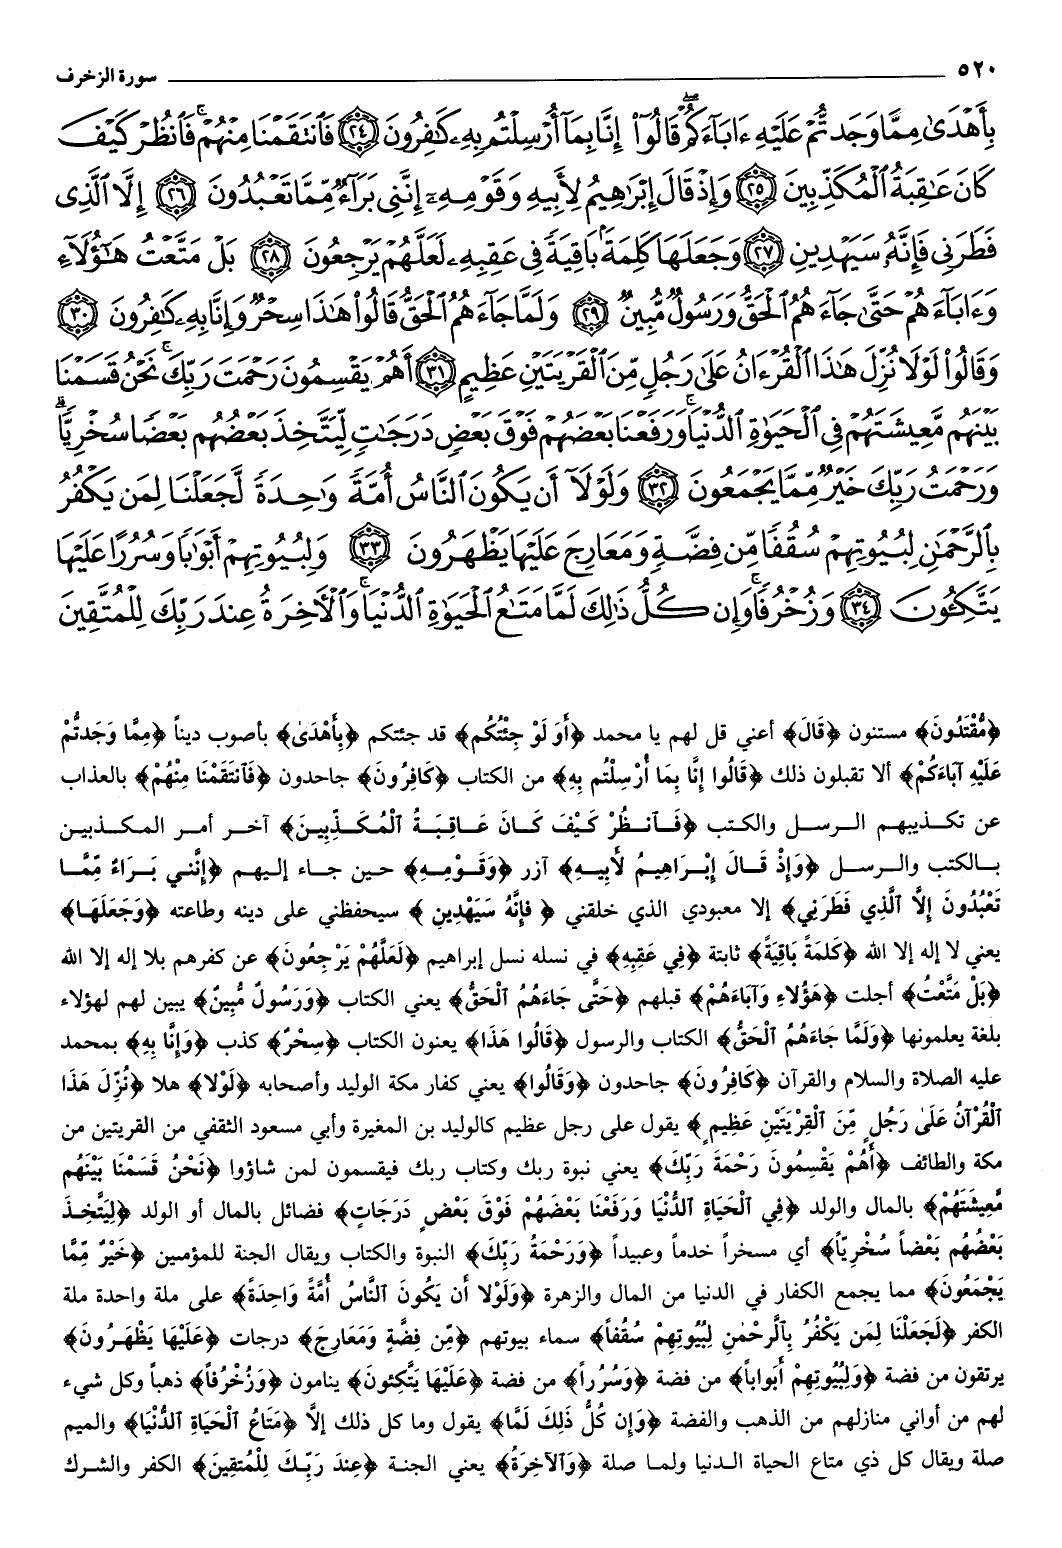 ٥٢٠ سورة الزخرف
بِأَهْدَىٰ مِمَّا وَجَدتُّمْ عَلَيْهِ ءَابَآءَكُمْ ۖ قَالُوٓا۟ إِنَّا بِمَآ أُرْسِلْتُم بِهِۦ كَـٰفِرُونَ ٢٤ فَٱنتَقَمْنَا مِنْهُمْ ۖ فَٱنظُرْ كَيْفَ
كَانَ عَـٰقِبَةُ ٱلْمُكَذِّبِينَ ٢٥ وَإِذْ قَالَ إِبْرَٰهِيمُ لِأَبِيهِ وَقَوْمِهِۦٓ إِنَّنِى بَرَآءٌ مِّمَّا تَعْبُدُونَ ٢٦ إِلَّا ٱلَّذِى
فَطَرَنِى فَإِنَّهُۥ سَيَهْدِينِ ٢٧ وَجَعَلَهَا كَلِمَةًۢ بَاقِيَةً فِى عَقِبِهِۦ لَعَلَّهُمْ يَرْجِعُونَ ٢٨ بَلْ مَتَّعْتُ هَـٰٓؤُلَآءِ
وَءَابَآءَهُمْ حَتَّىٰ جَآءَهُمُ ٱلْحَقُّ وَرَسُولٌ مُّبِينٌ ٢٩ وَلَمَّا جَآءَهُمُ ٱلْحَقُّ قَالُوا۟ هَـٰذَا سِحْرٌ وَإِنَّا بِهِۦ كَـٰفِرُونَ ٣٠
وَقَالُوا۟ لَوْلَا نُزِّلَ هَـٰذَا ٱلْقُرْءَانُ عَلَىٰ رَجُلٍ مِّنَ ٱلْقَرْيَتَيْنِ عَظِيمٍ ٣١ أَهُمْ يَقْسِمُونَ رَحْمَتَ رَبِّكَ ۚ نَحْنُ قَسَمْنَا
بَيْنَهُم مَّعِيشَتَهُمْ فِى ٱلْحَيَوٰةِ ٱلدُّنْيَا ۚ وَرَفَعْنَا بَعْضَهُمْ فَوْقَ بَعْضٍ دَرَجَـٰتٍ لِّيَتَّخِذَ بَعْضُهُم بَعْضًا سُخْرِيًّا ۗ
وَرَحْمَتُ رَبِّكَ خَيْرٌ مِّمَّا يَجْمَعُونَ ٣٢ وَلَوْلَآ أَن يَكُونَ ٱلنَّاسُ أُمَّةً وَٰحِدَةً لَّجَعَلْنَا لِمَن يَكْفُرُ
بِٱلرَّحْمَـٰنِ لِبُيُوتِهِمْ سُقُفًا مِّن فِضَّةٍ وَمَعَارِجَ عَلَيْهَا يَظْهَرُونَ ٣٣ وَلِبُيُوتِهِمْ أَبْوَٰبًا وَسُرُرًا عَلَيْهَا
يَتَّكِـُٔونَ ٣٤ وَزُخْرُفًا ۚ وَإِن كُلُّ ذَٰلِكَ لَمَّا مَتَـٰعُ ٱلْحَيَوٰةِ ٱلدُّنْيَا ۚ وَٱلْـَٔاخِرَةُ عِندَ رَبِّكَ لِلْمُتَّقِينَ
﴿مُّقْتَدُونَ﴾ مستنون ﴿قَالَ﴾ أعني قل لهم يا محمد ﴿أَوَ لَوْ جِئْتُكُم﴾ قد جئتكم ﴿بِأَهْدَىٰ﴾ بأصوب ديناً ﴿مِمَّا وَجَدتُّمْ
عَلَيْهِ آبَاءَكُمْ﴾ ألا تقبلون ذلك ﴿قَالُوا إِنَّا بِمَا أُرْسِلْتُم بِهِ﴾ من الكتاب ﴿كَافِرُونَ﴾ جاحدون ﴿فَٱنتَقَمْنَا مِنْهُمْ﴾ بالعذاب
عن تكذيبهم الرسل والكتب ﴿فَٱنظُرْ كَيْفَ كَانَ عَاقِبَةُ ٱلْمُكَذِّبِينَ﴾ آخر أمر المكذبين
بالكتب والرسل ﴿وَإِذْ قَالَ إِبْرَاهِيمُ لأَبِيهِ﴾ آزر ﴿وَقَوْمِهِ﴾ حين جاء إليهم ﴿إِنَّنِي بَرَاءٌ مِّمَّا
تَعْبُدُونَ إِلَّا ٱلَّذِي فَطَرَنِي﴾ إلا معبودي الذي خلقني ﴿فَإِنَّهُ سَيَهْدِينِ﴾ سيحفظني على دينه وطاعته ﴿وَجَعَلَهَا﴾
يعني لا إله إلا الله ﴿كَلِمَةً بَاقِيَةً﴾ ثابتة ﴿فِي عَقِبِهِ﴾ في نسله نسل إبراهيم ﴿لَعَلَّهُمْ يَرْجِعُونَ﴾ عن كفرهم بلا إله إلا الله
﴿بَلْ مَتَّعْتُ﴾ أجلت ﴿هَؤُلاءِ وَآبَاءَهُمْ﴾ قبلهم ﴿حَتَّى جَاءَهُمُ ٱلْحَقُّ﴾ يعني الكتاب ﴿وَرَسُولٌ مُّبِينٌ﴾ يبين لهم لهؤلاء
بلغة يعلمونها ﴿وَلَمَّا جَاءَهُمُ ٱلْحَقُّ﴾ الكتاب والرسول ﴿قَالُوا هَذَا﴾ يعنون الكتاب ﴿سِحْرٌ﴾ كذب ﴿وَإِنَّا بِهِ﴾ بمحمد
عليه الصلاة والسلام والقرآن ﴿كَافِرُونَ﴾ جاحدون ﴿وَقَالُوا﴾ يعني كفار مكة الوليد وأصحابه ﴿لَوْلا﴾ هلا ﴿نُزِّلَ هَذَا
ٱلْقُرْآنُ عَلَىٰ رَجُلٍ مِّنَ ٱلْقَرْيَتَيْنِ عَظِيمٍ﴾ يقول على رجل عظيم كالوليد بن المغيرة وأبي مسعود الثقفي من القريتين من
مكة والطائف ﴿أَهُمْ يَقْسِمُونَ رَحْمَةَ رَبِّكَ﴾ يعني نبوة ربك وكتاب ربك فيقسمون لمن شاؤوا ﴿نَحْنُ قَسَمْنَا بَيْنَهُم
مَّعِيشَتَهُمْ﴾ بالمال والولد ﴿فِي ٱلْحَيَاةِ ٱلدُّنْيَا وَرَفَعْنَا بَعْضَهُمْ فَوْقَ بَعْضٍ دَرَجَاتٍ﴾ فضائل بالمال أو الولد ﴿لِيَتَّخِذَ
بَعْضُهُم بَعْضاً سُخْرِيّاً﴾ أي مسخراً خدماً وعبيداً ﴿وَرَحْمَةُ رَبِّكَ﴾ النبوة والكتاب ويقال الجنة للمؤمنين ﴿خَيْرٌ مِّمَّا
يَجْمَعُونَ﴾ مما يجمع الكفار في الدنيا من المال والزهرة ﴿وَلَوْلا أَن يَكُونَ ٱلنَّاسُ أُمَّةً وَاحِدَةً﴾ على ملة واحدة ملة
الكفر ﴿لَجَعَلْنَا لِمَن يَكْفُرُ بِٱلرَّحْمٰنِ لِبُيُوتِهِمْ سُقُفاً﴾ سماء بيوتهم ﴿مِّن فِضَّةٍ وَمَعَارِجَ﴾ درجات ﴿عَلَيْهَا يَظْهَرُونَ﴾
يرتقون من فضة ﴿وَلِبُيُوتِهِمْ أَبْوَاباً﴾ من فضة ﴿وَسُرُراً﴾ من فضة ﴿عَلَيْهَا يَتَّكِئونَ﴾ ينامون ﴿وَزُخْرُفاً﴾ ذهباً وكل شيء
لهم من أواني منازلهم من الذهب والفضة ﴿وَإِن كُلُّ ذَلِكَ لَمَّا﴾ يقول وما كل ذلك إلَّا ﴿مَتَاعُ ٱلْحَيَاةِ ٱلدُّنْيَا﴾ والميم
صلة ويقال كل ذي متاع الحياة الدنيا ولما صلة ﴿وَٱلآخِرَةُ﴾ يعني الجنة ﴿عِندَ رَبِّكَ لِلْمُتَّقِينَ﴾ الكفر والشرك